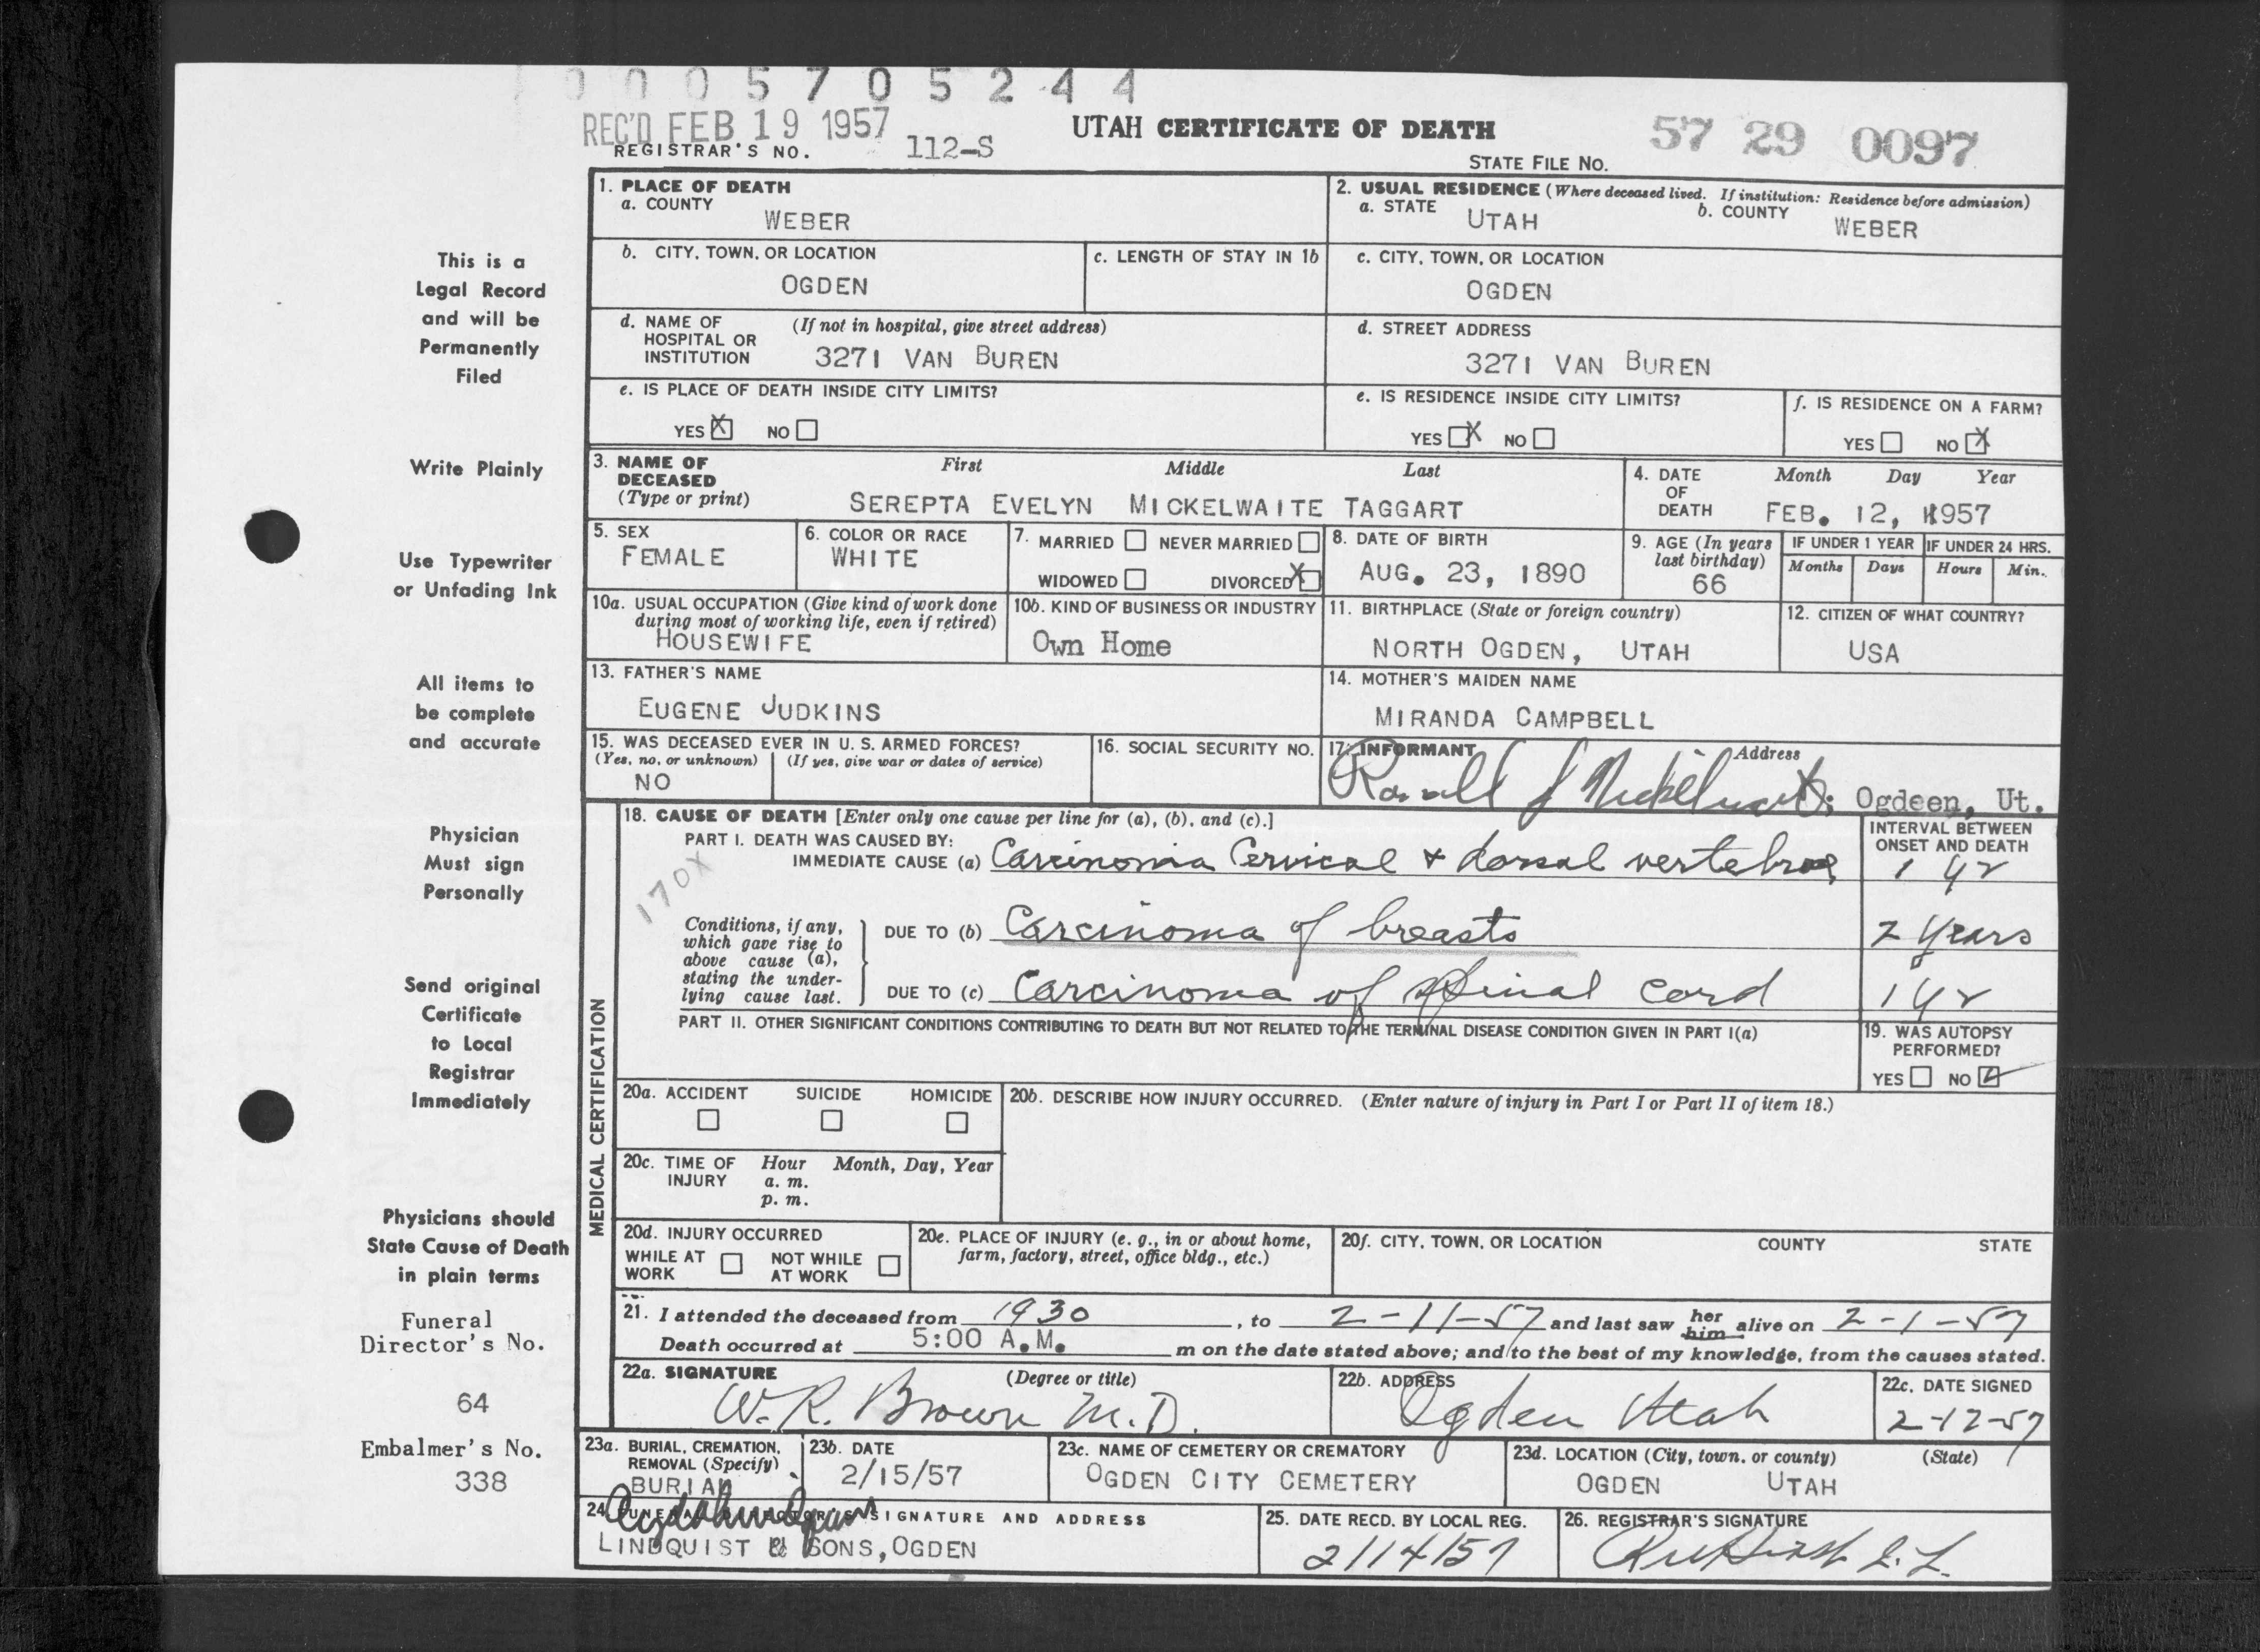 0005705244
REC'D FEB 19 1957
REGISTRAR'S NO. 112-S
UTAH CERTIFICATE OF DEATH
57 29 0097
STATE FILE NO.
1. PLACE OF DEATH
a. COUNTY
WEBER
2. USUAL RESIDENCE (Where deceased lived. If institution: Residence before admission)
a. STATE UTAH b. COUNTY WEBER
b. CITY, TOWN, OR LOCATION
OGDEN
c. LENGTH OF STAY IN 1b
c. CITY, TOWN, OR LOCATION
OGDEN
d. NAME OF HOSPITAL OR INSTITUTION (If not in hospital, give street address)
3271 VAN BUREN
d. STREET ADDRESS
3271 VAN BUREN
e. IS PLACE OF DEATH INSIDE CITY LIMITS?
YES X NO
e. IS RESIDENCE INSIDE CITY LIMITS?
YES X NO
f. IS RESIDENCE ON A FARM?
YES NO X
3. NAME OF DECEASED (Type or print)
First Middle Last
SEREPTA EVELYN MICKELWAITE TAGGART
4. DATE OF DEATH Month Day Year
FEB. 12, 1957
5. SEX
FEMALE
6. COLOR OR RACE
WHITE
7. MARRIED NEVER MARRIED
WIDOWED DIVORCED X
8. DATE OF BIRTH
AUG. 23, 1890
9. AGE (In years last birthday)
66
IF UNDER 1 YEAR IF UNDER 24 HRS.
Months Days Hours Min.
10a. USUAL OCCUPATION (Give kind of work done during most of working life, even if retired)
HOUSEWIFE
10b. KIND OF BUSINESS OR INDUSTRY
Own Home
11. BIRTHPLACE (State or foreign country)
NORTH OGDEN, UTAH
12. CITIZEN OF WHAT COUNTRY?
USA
13. FATHER'S NAME
EUGENE JUDKINS
14. MOTHER'S MAIDEN NAME
MIRANDA CAMPBELL
15. WAS DECEASED EVER IN U. S. ARMED FORCES?
(Yes, no, or unknown) (If yes, give war or dates of service)
NO
16. SOCIAL SECURITY NO.
17. INFORMANT Address
Ogdeen, Ut.
MEDICAL CERTIFICATION
18. CAUSE OF DEATH [Enter only one cause per line for (a), (b), and (c).]
PART I. DEATH WAS CAUSED BY:
INTERVAL BETWEEN ONSET AND DEATH
IMMEDIATE CAUSE (a) Carcinoma Cervical & dorsal vertebrae 1 yr
170X
Conditions, if any, which gave rise to above cause (a), stating the underlying cause last.
DUE TO (b) Carcinoma of breasts 2 years
DUE TO (c) Carcinoma of spinal cord 1 yr
PART II. OTHER SIGNIFICANT CONDITIONS CONTRIBUTING TO DEATH BUT NOT RELATED TO THE TERMINAL DISEASE CONDITION GIVEN IN PART I(a)
19. WAS AUTOPSY PERFORMED?
YES NO
20a. ACCIDENT SUICIDE HOMICIDE
20b. DESCRIBE HOW INJURY OCCURRED. (Enter nature of injury in Part I or Part II of item 18.)
20c. TIME OF INJURY Hour Month, Day, Year
a. m.
p. m.
20d. INJURY OCCURRED
WHILE AT WORK NOT WHILE AT WORK
20e. PLACE OF INJURY (e. g., in or about home, farm, factory, street, office bldg., etc.)
20f. CITY, TOWN, OR LOCATION COUNTY STATE
21. I attended the deceased from 1930, to 2-11-57 and last saw her him alive on 2-1-57
Death occurred at 5:00 A.M. m on the date stated above; and to the best of my knowledge, from the causes stated.
22a. SIGNATURE (Degree or title)
W. R. Brown M.D.
22b. ADDRESS
Ogden Utah
22c. DATE SIGNED
2-12-57
23a. BURIAL, CREMATION, REMOVAL (Specify)
BURIAL
23b. DATE
2/15/57
23c. NAME OF CEMETERY OR CREMATORY
OGDEN CITY CEMETERY
23d. LOCATION (City, town, or county) (State)
OGDEN UTAH
24. FUNERAL DIRECTOR'S SIGNATURE AND ADDRESS
LINDQUIST & SONS, OGDEN
25. DATE RECD. BY LOCAL REG.
2/14/57
26. REGISTRAR'S SIGNATURE
This is a
Legal Record
and will be
Permanently
Filed
Write Plainly
Use Typewriter
or Unfading Ink
All items to
be complete
and accurate
Physician
Must sign
Personally
Send original
Certificate
to Local
Registrar
Immediately
Physicians should
State Cause of Death
in plain terms
Funeral
Director's No.
64
Embalmer's No.
338